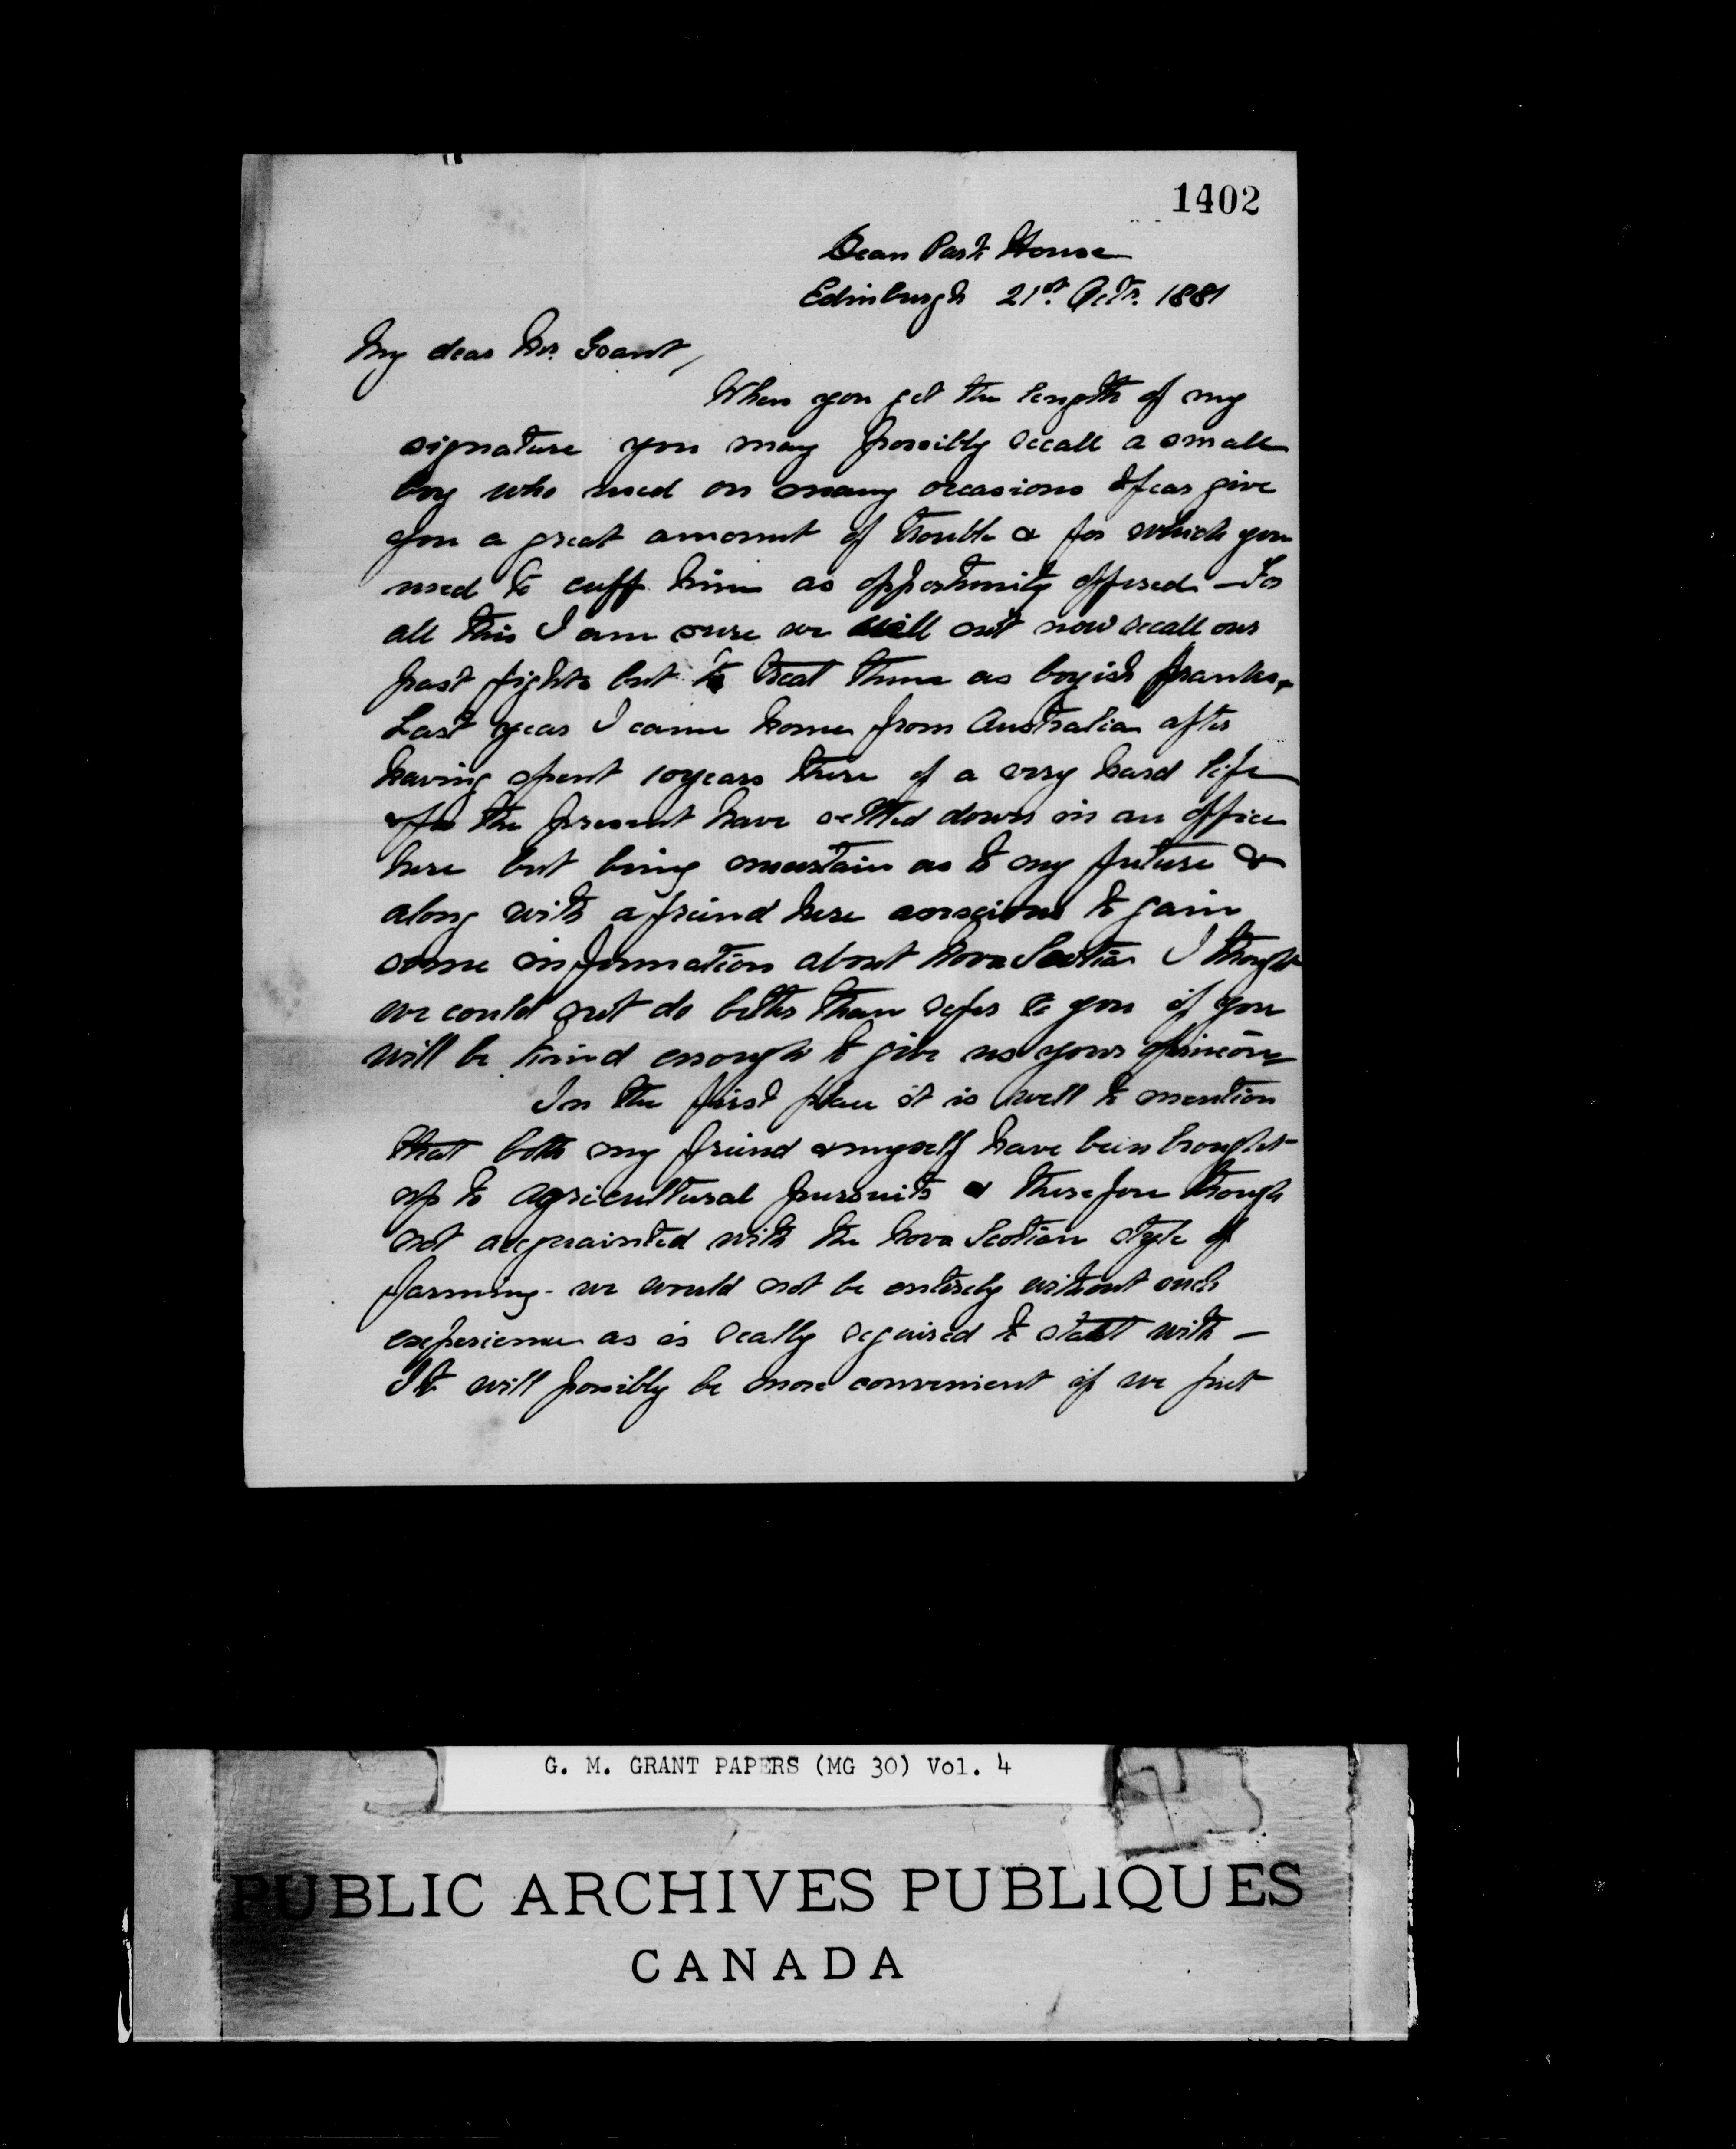 1402
Dean Park House
Edinburgh 21st. Octr. 1881
My dear Mr. Grant,
When you get the length of my
signature you may possibly recall a small
boy who used on many occasions I fear give
you a great amount of trouble & for which you
used to cuff him as opportunity offered — For
all this I am sure we will not now recall our
past fights but to treat them as boyish pranks.
Last year I came home from Australia after
having spent 10 years there of a very hard life
& for the present have settled down in an office
here but being uncertain as to my future &
along with a friend here anxious to gain
some information about Nova Scotia I thought
we could not do better than refer to you if you
will be kind enough to give us your opinion
In the first place it is well to mention
that both my friend & myself have been brought
up to agricultural pursuits & therefore though
not acquainted with the Nova Scotian style of
farming - we would not be entirely without such
experience as is really required to start with —
It will possibly be more convenient if we put
G. M. GRANT PAPERS (MG 30) Vol. 4
PUBLIC ARCHIVES PUBLIQUES
CANADA